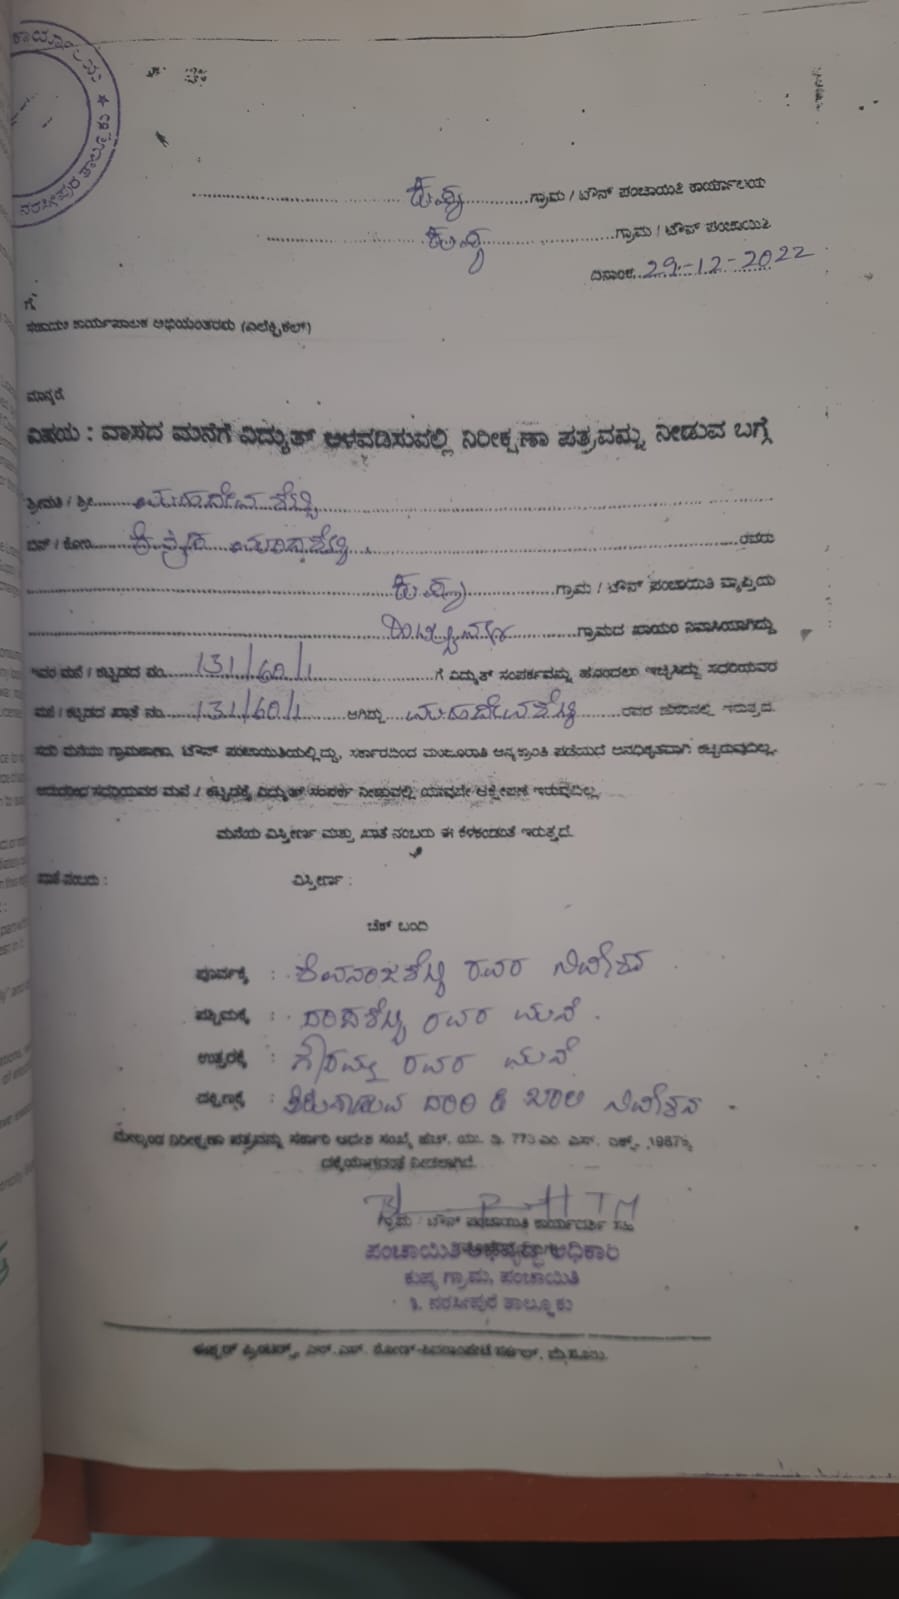 ಕಾರ್ಯಾಲಯ ★ ನರಸೀಪುರ ತಾಲ್ಲೂಕು
ಕುಪ್ಯ ಗ್ರಾಮ / ಟೌನ್ ಪಂಚಾಯಿತಿ ಕಾರ್ಯಾಲಯ
ಕುಪ್ಯ ಗ್ರಾಮ / ಟೌನ್ ಪಂಚಾಯಿತಿ
ದಿನಾಂಕ 29-12-2022
ಗೆ
ಸಹಾಯಕ ಕಾರ್ಯಪಾಲಕ ಅಭಿಯಂತರರು (ಎಲೆಕ್ಟ್ರಿಕಲ್)
ಮಾನ್ಯರೆ
ವಿಷಯ : ವಾಸದ ಮನೆಗೆ ವಿದ್ಯುತ್ ಅಳವಡಿಸುವಲ್ಲಿ ನಿರೀಕ್ಷಣಾ ಪತ್ರವನ್ನು ನೀಡುವ ಬಗ್ಗೆ
ಶ್ರೀಮತಿ / ಶ್ರೀ ಮಹದೇವಶೆಟ್ಟಿ
ಬಿನ್ / ಕೋಂ ರವರು
ಕುಪ್ಯ ಗ್ರಾಮ / ಟೌನ್ ಪಂಚಾಯಿತಿ ವ್ಯಾಪ್ತಿಯ
ಗ್ರಾಮದ ಖಾಯಂ ನಿವಾಸಿಯಾಗಿದ್ದು
ಇವರ ಮನೆ / ಕಟ್ಟಡದ ನಂ. 131/60/1 ಗೆ ವಿದ್ಯುತ್ ಸಂಪರ್ಕವನ್ನು ಹೊಂದಲು ಇಚ್ಛಿಸಿದ್ದು ಸದರಿಯವರ
ಮನೆ / ಕಟ್ಟಡದ ಖಾತೆ ನಂ. 131/60/1 ಆಗಿದ್ದು ಮಹದೇವಶೆಟ್ಟಿ ರವರ ಹೆಸರಿನಲ್ಲಿ ಇರುತ್ತದೆ.
ಸದರಿ ಮನೆಯು ಗ್ರಾಮಠಾಣಾ, ಟೌನ್ ಪಂಚಾಯಿತಿಯಲ್ಲಿದ್ದು, ಸರ್ಕಾರದಿಂದ ಮಂಜೂರಾತಿ ಅನ್ಯಕ್ರಾಂತಿ ಪಡೆಯದೆ ಅನಧಿಕೃತವಾಗಿ ಕಟ್ಟಿರುವುದಿಲ್ಲ.
ಆದುದರಿಂದ ಸದರಿಯವರ ಮನೆ / ಕಟ್ಟಡಕ್ಕೆ ವಿದ್ಯುತ್ ಸಂಪರ್ಕ ನೀಡುವಲ್ಲಿ ಯಾವುದೇ ಆಕ್ಷೇಪಣೆ ಇರುವುದಿಲ್ಲ.
ಮನೆಯ ವಿಸ್ತೀರ್ಣ ಮತ್ತು ಖಾತೆ ನಂಬರು ಈ ಕೆಳಕಂಡಂತೆ ಇರುತ್ತದೆ.
ಖಾತೆ ನಂಬರು : ವಿಸ್ತೀರ್ಣ :
ಚೆಕ್ ಬಂದಿ
ಪೂರ್ವಕ್ಕೆ : ರವರ ನಿವೇಶನ
ಪಶ್ಚಿಮಕ್ಕೆ : ರವರ ಮನೆ .
ಉತ್ತರಕ್ಕೆ : ಗೌರಮ್ಮ ರವರ ಮನೆ
ದಕ್ಷಿಣಕ್ಕೆ : ತಿರುಗಾಡುವ ದಾರಿ & ಖಾಲಿ ನಿವೇಶನ
ಮೇಲ್ಕಂಡ ನಿರೀಕ್ಷಣಾ ಪತ್ರವನ್ನು ಸರ್ಕಾರಿ ಆದೇಶ ಸಂಖ್ಯೆ ಹೆಚ್. ಯು. ಡಿ. 773 ಎಂ. ಎನ್. ಎಕ್ಸ್. ,1987ಕ್ಕೆ
ನೀಡಲಾಗಿದೆ.
ಗ್ರಾಮ / ಟೌನ್ ಪಂಚಾಯಿತಿ ಕಾರ್ಯದರ್ಶಿ ಸಹಿ
ಪಂಚಾಯಿತಿ ಅಭಿವೃದ್ಧಿ ಅಧಿಕಾರಿ
ಕುಪ್ಯ ಗ್ರಾಮ ಪಂಚಾಯಿತಿ
ತಿ. ನರಸೀಪುರ ತಾಲ್ಲೂಕು